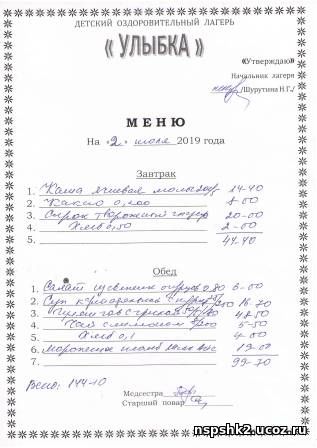 ДЕТСКИЙ ОЗДОРОВИТЕЛЬНЫЙ ЛАГЕРЬ
« УЛЫБКА »
«Утверждаю»
Начальник лагеря
/Шурутина Н.Г./
МЕНЮ
На «2» июля 2019 года
Завтрак
1. Каша ячневая молочная 14-40
2. Какао 0,200 8-00
3. Сырок творожный 20-00
4. Хлеб 0,50 2-00
5. 44.40
Обед
1. Салат из свежих огурцов 0,80 6-00
2. Суп картофельный 16-70
3. Гуляш с гречкой 48-50
4. Чай с лимоном 5-50
5. Хлеб 0,1 4-00
6. Мороженое 19-00
7. 99-70
Всего: 144-10
Медсестра
Старший повар
nspshk2.ucoz.ru